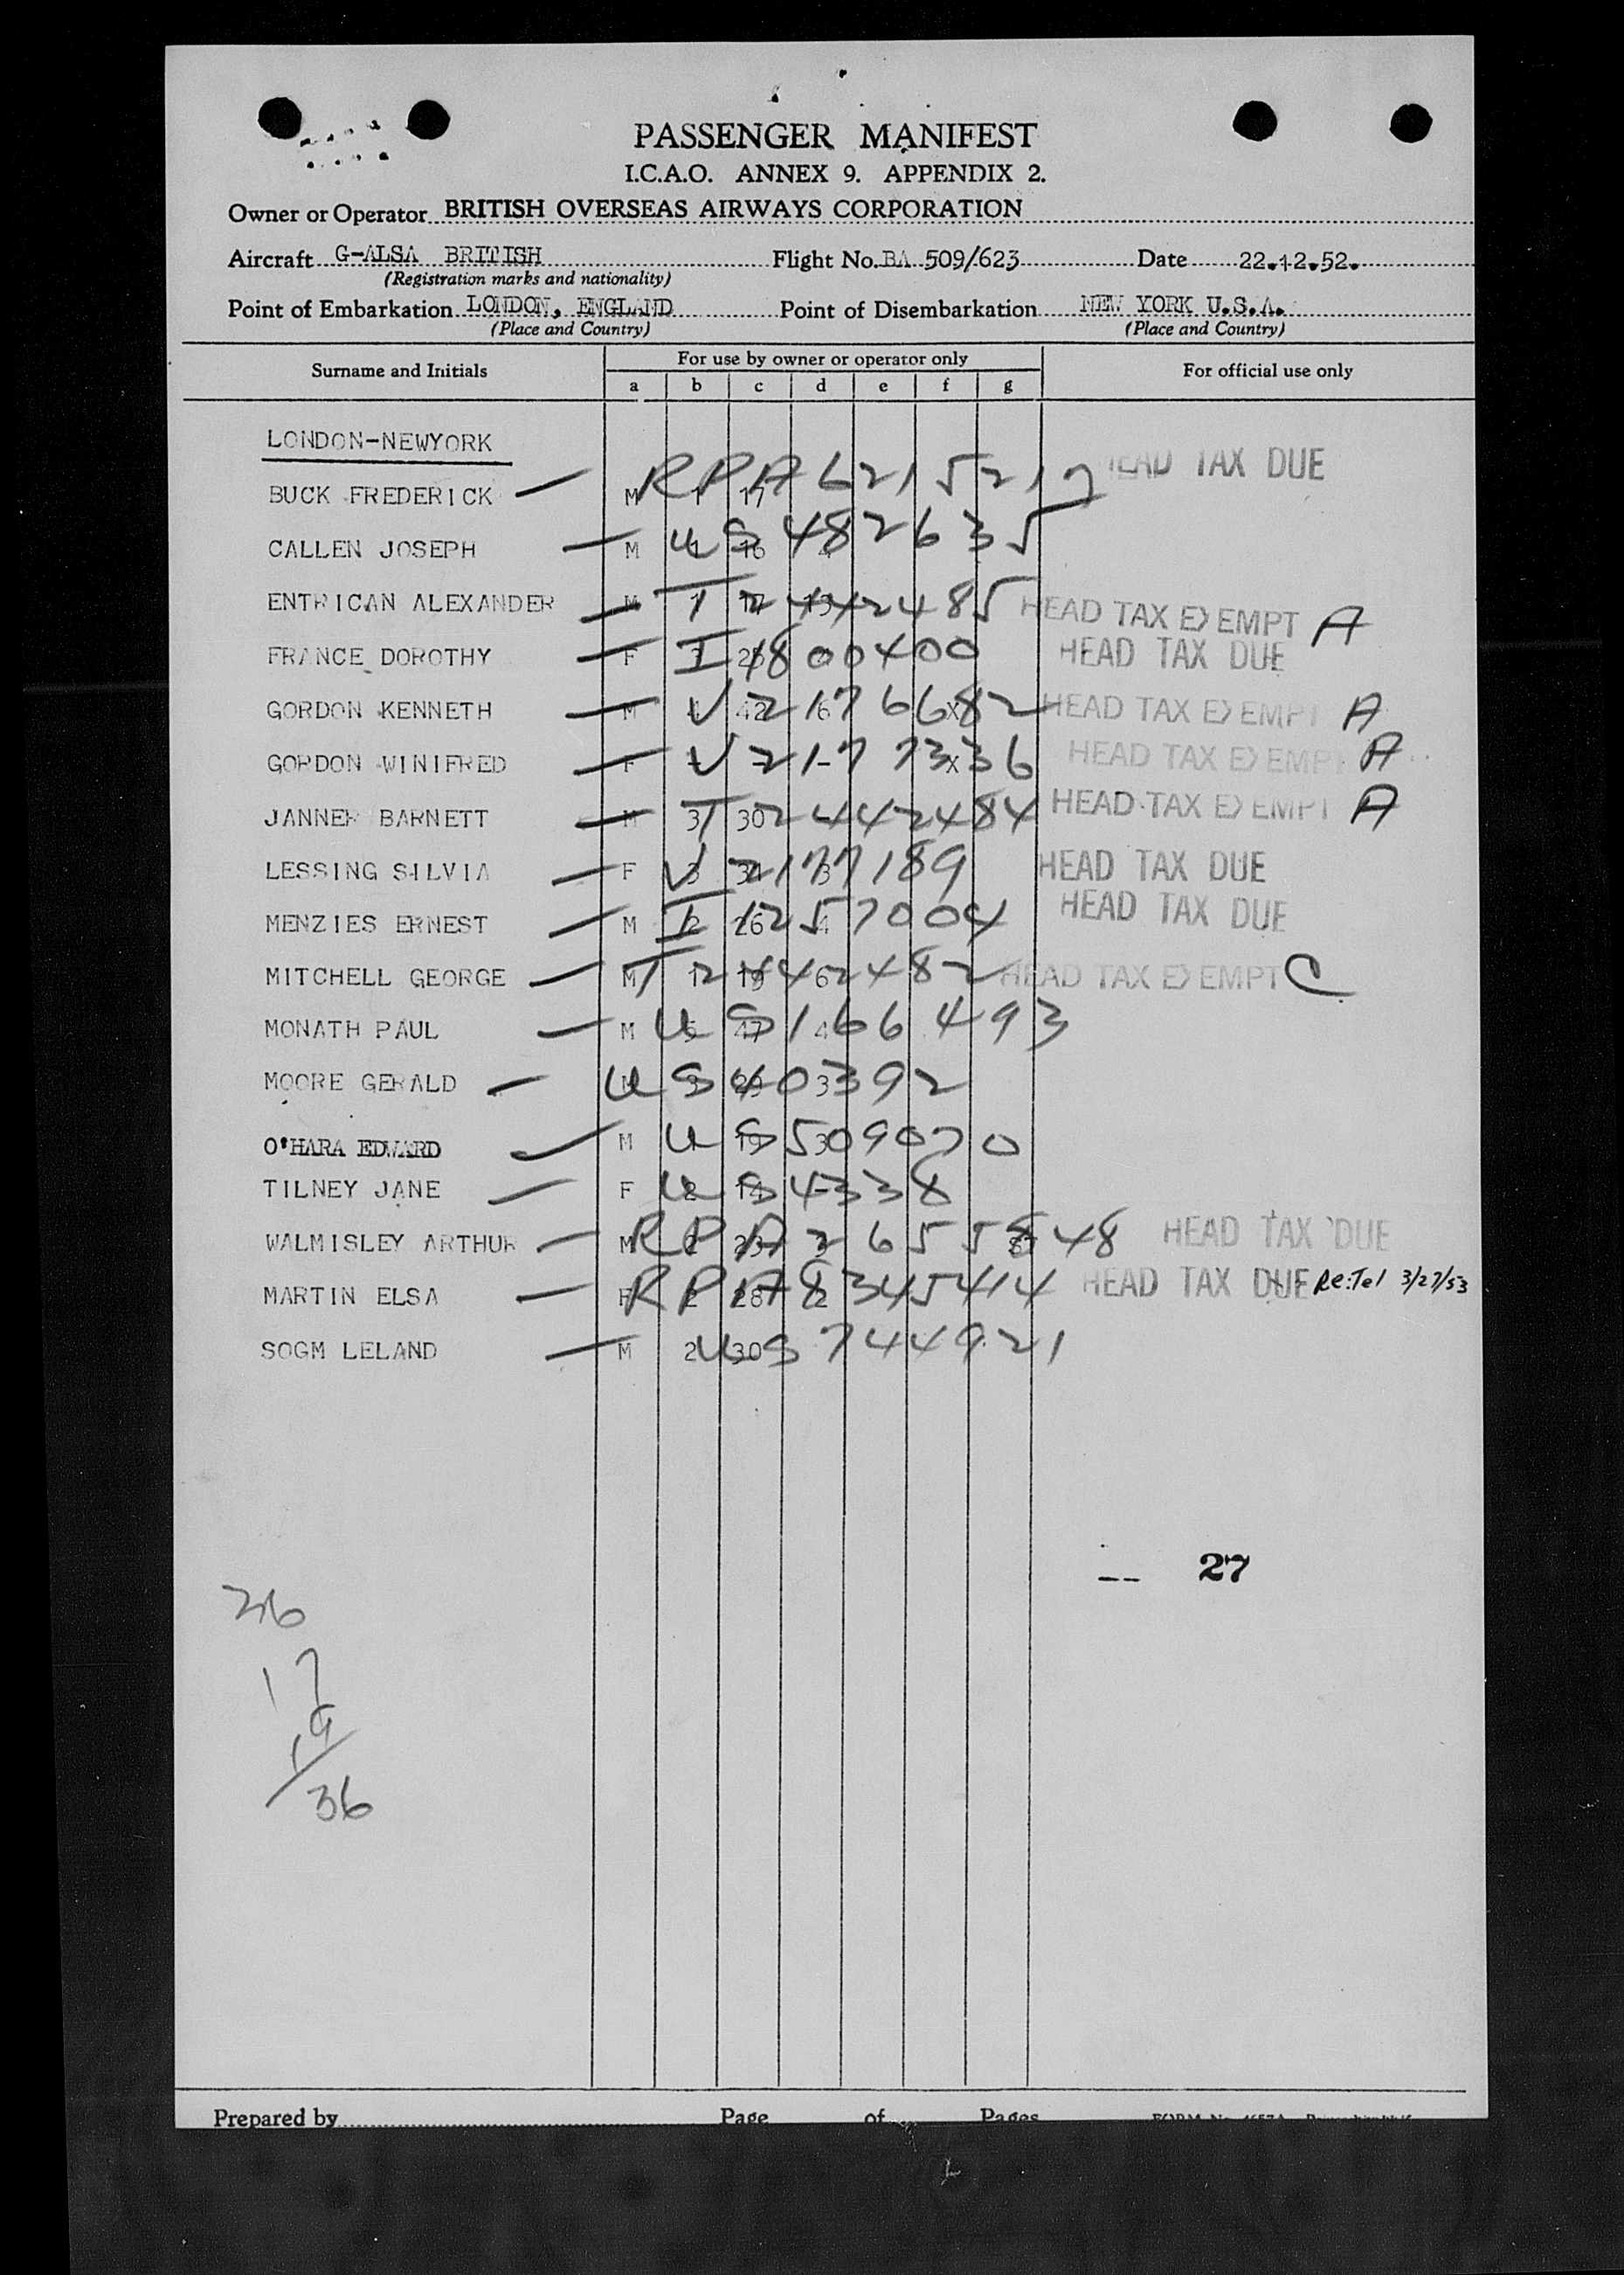 PASSENGER MANIFEST
I.C.A.O. ANNEX 9. APPENDIX 2.
Owner or Operator BRITISH OVERSEAS AIRWAYS CORPORATION
Aircraft G-ALSA BRITISH Flight No. BA 509/623 Date 22.12.52.
(Registration marks and nationality)
Point of Embarkation LONDON, ENGLAND Point of Disembarkation NEW YORK U.S.A.
(Place and Country) (Place and Country)
Surname and Initials For use by owner or operator only For official use only
a b c d e f g
LONDON-NEWYORK
BUCK FREDERICK M 1 17 RPA 6215217 HEAD TAX DUE
CALLEN JOSEPH M US 4826335
ENTRICAN ALEXANDER M T 2442485 HEAD TAX EXEMPT A
FRANCE DOROTHY F I 1800400 HEAD TAX DUE
GORDON KENNETH M 42 6 X V 2176682 HEAD TAX EXEMPT A
GORDON WINIFRED F - X V 2177336 HEAD TAX EXEMPT A
JANNER BARNETT M 3 30 T 2442484 HEAD TAX EXEMPT A
LESSING SILVIA F 3 V 2177189 HEAD TAX DUE
MENZIES ERNEST M 2 26 4 I 1257004 HEAD TAX DUE
MITCHELL GEORGE M 1 19 6 T 2442482 HEAD TAX EXEMPT C
MONATH PAUL M 5 47 4 US 166493
MOORE GERALD M 3 US 40392
O'HARA EDWARD M 19 3 US 509070
TILNEY JANE F 2 14 - US 4338
WALMISLEY ARTHUR M 2 RPA 2655848 HEAD TAX DUE
MARTIN ELSA F 2 28 2 RPA 8345414 HEAD TAX DUE Re:Tel 3/27/53
SOGM LELAND M 2 30 US 744921
-- 27
36
17
19
36
Prepared by Page of Pages